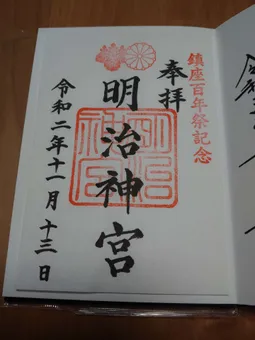 鎮座百年祭記念
奉拝
明治神宮
令和二年十一月十三日